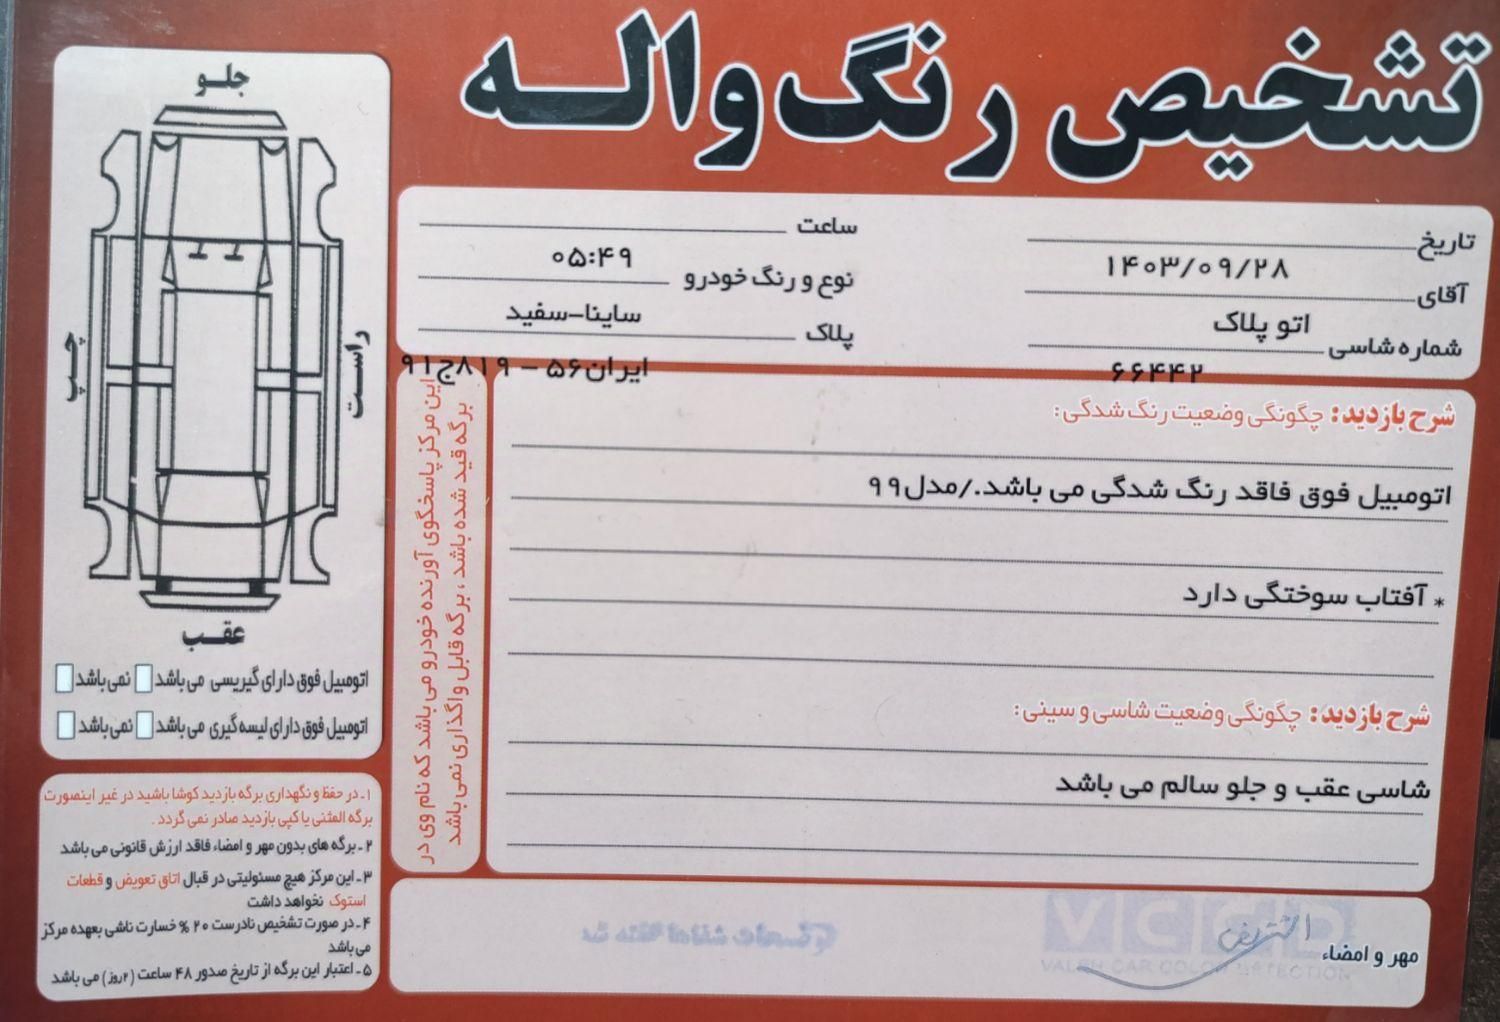 تشخیص رنگ واله
تاریخ
۱۴۰۳/۰۹/۲۸
ساعت
۰۵:۴۹
آقای
اتو پلاک
نوع و رنگ خودرو
ساینا-سفید
شماره شاسی
۶۶۴۴۲
پلاک
ایران۵۶ - ۸۱۹ج۹۱
شرح بازدید: چگونگی وضعیت رنگ شدگی:
اتومبیل فوق فاقد رنگ شدگی می باشد./مدل۹۹
* آفتاب سوختگی دارد
شرح بازدید: چگونگی وضعیت شاسی و سینی:
شاسی عقب و جلو سالم می باشد
مهر و امضاء
VCCD
VALEH CAR COLOR DETECTION
این مرکز پاسخگوی آورنده خودرو می باشد که نام وی در
برگه قید شده باشد ، برگه قابل واگذاری نمی باشد
جلو
چپ
راست
عقب
اتومبیل فوق دارای گیریسی می باشد نمی باشد
اتومبیل فوق دارای لیسه گیری می باشد نمی باشد
۱ـ در حفظ و نگهداری برگه بازدید کوشا باشید در غیر اینصورت
برگه المثنی یا کپی بازدید صادر نمی گردد .
۲ـ برگه های بدون مهر و امضاء فاقد ارزش قانونی می باشد
۳ـ این مرکز هیچ مسئولیتی در قبال اتاق تعویض و قطعات
استوک نخواهد داشت
۴ـ در صورت تشخیص نادرست ۲۰ % خسارت ناشی بعهده مرکز
می باشد
۵ـ اعتبار این برگه از تاریخ صدور ۴۸ ساعت (۲روز) می باشد